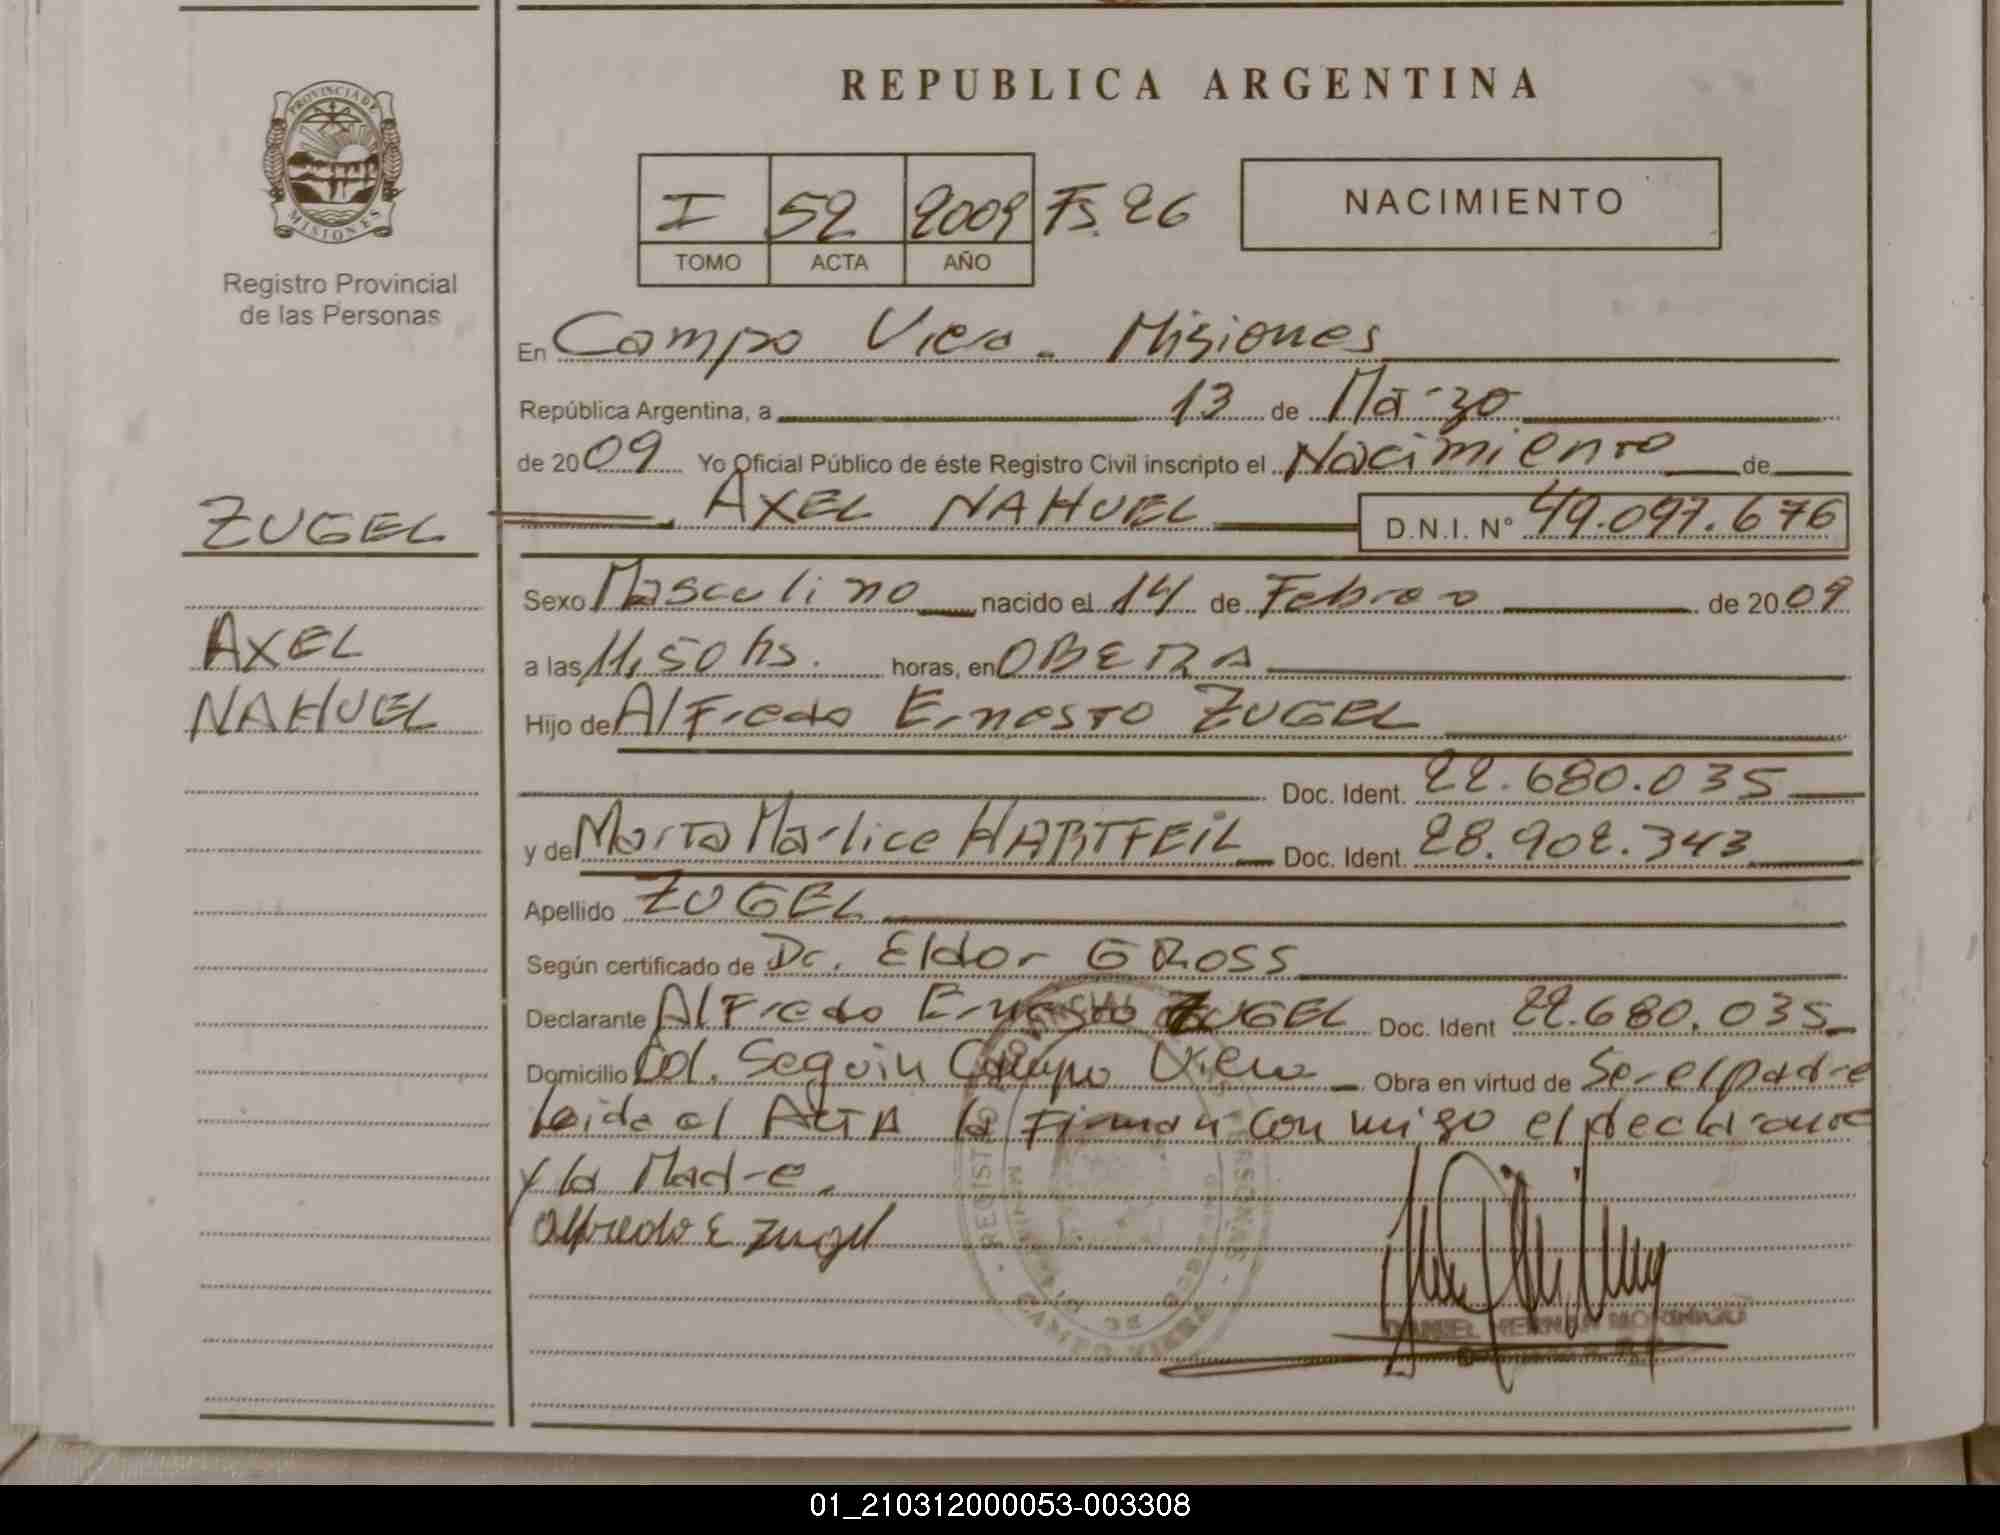 REPUBLICA ARGENTINA
PROVINCIA DE
MISIONES
Registro Provincial
de las Personas
I 52 2009 Fs. 26
TOMO ACTA AÑO
NACIMIENTO
En Campo Viera. Misiones
República Argentina, a 13 de Marzo
de 2009 Yo Oficial Público de éste Registro Civil inscripto el Nacimiento de
ZUGEL AXEL NAHUEL D.N.I. N° 49.097.676
Sexo Masculino nacido el 14 de Febrero de 2009
AXEL
a las 11,50 hs. horas, en OBERA
NAHUEL
Hijo de Alfredo Ernesto ZUGEL
Doc. Ident. 22.680.035
y de Marta Marlice HARTFEIL Doc. Ident. 28.902.343
Apellido ZUGEL
Según certificado de Dr. Eldor GROSS
Declarante Alfredo Ernesto ZUGEL Doc. Ident 22.680.035
Domicilio Col. Seguin Campo Viera Obra en virtud de Ser el padre
Leida el ACTA la Firman con migo el declarante
y la Madre.
Alfredo E Zugel
DANIEL HERNAN
01_210312000053-003308